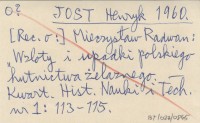 o?
JOST Henryk 1960.
[Rec. o:] Mieczysław Radwan:
Wzloty i upadki polskiego
hutnictwa żelaznego.
Kwart. Hist. Nauki i Tech.
nr 1: 113-115.